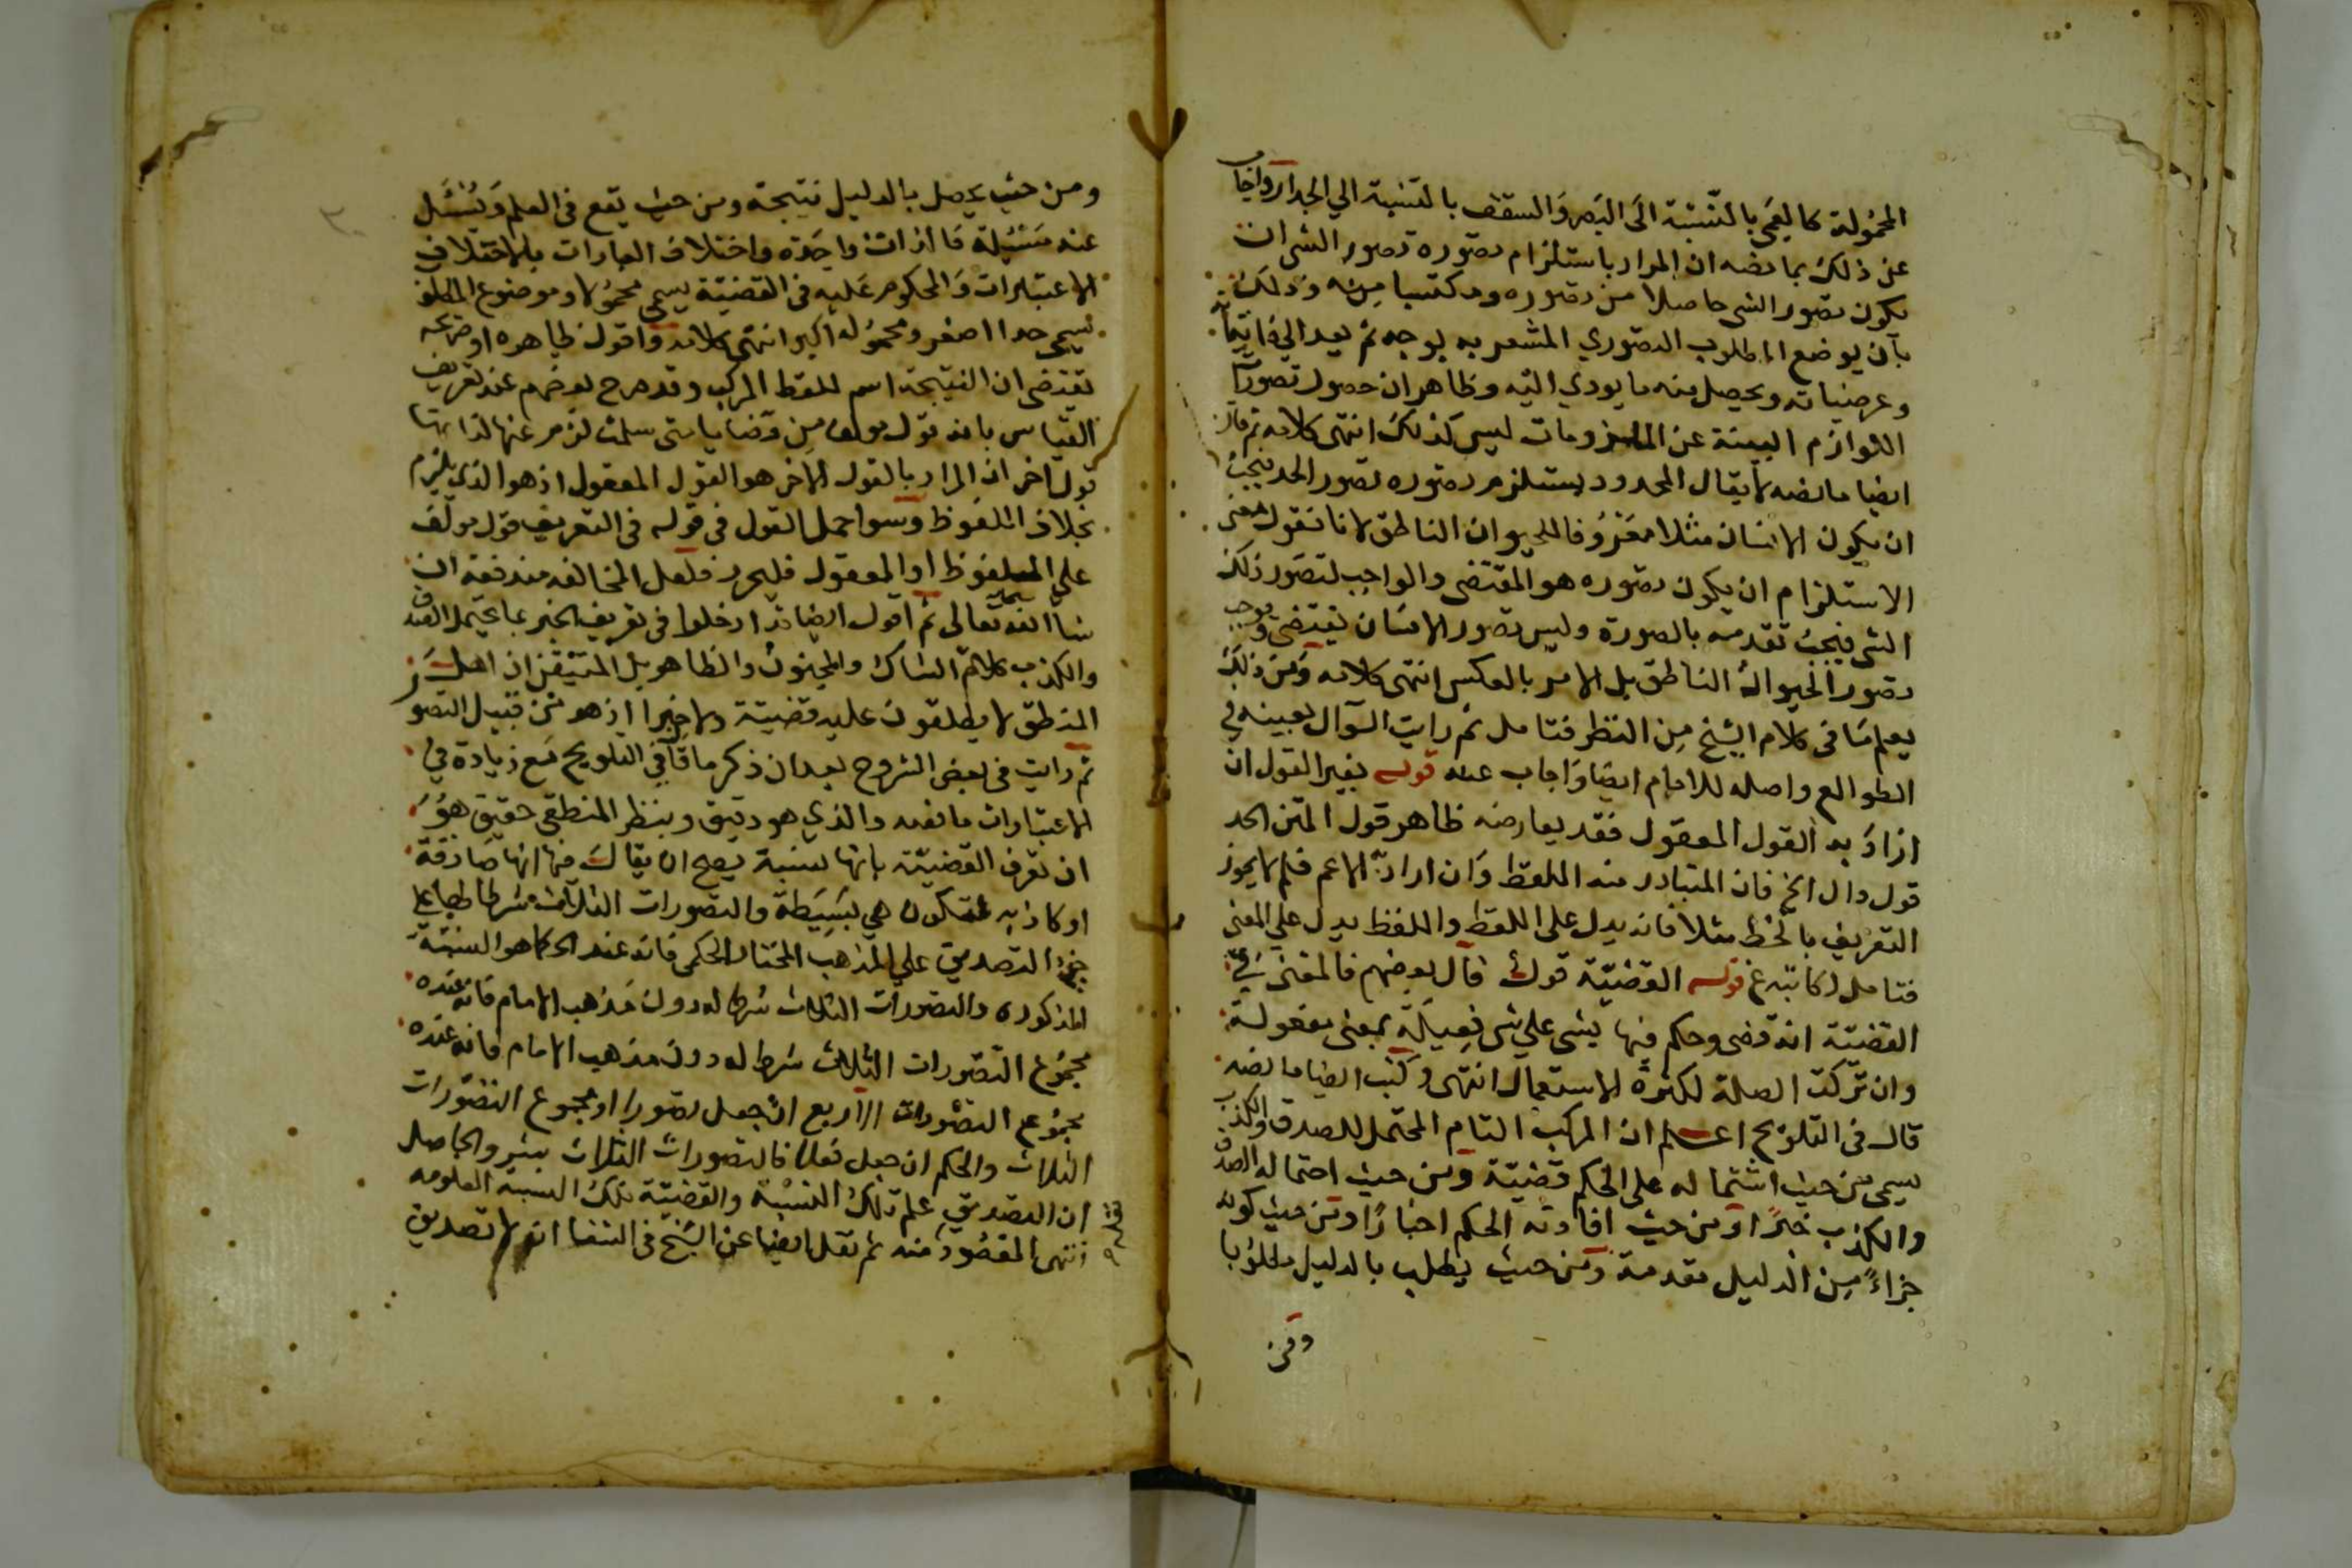 المحمولة كالعمى بالنسبة الى البصر والسقف بالنسبة الي الجدار واجاب
عن ذلك بما نصه ان المراد باستلزام تصوره تصور الشي ان
يكون تصور الشي حاصلا من تصوره ومكتسبا منه وذلك
بان يوضع المطلوب التصوري المشعر به بوجه ثم يعد الي ذاتياته
وعرضياته ويحصل منه ما يودي اليه وظاهر ان حصول تصورات
اللوازم البينة عن الملزومات ليس كذلك انتهى كلامه ثم قال
ايضا ما نصه لا يقال المحدود يستلزم تصوره تصور الحد فيجب
ان يكون الانسان مثلا معرفا للحيوان الناطق لانا نقول معنى
الاستلزام ان يكون تصوره هو المقتضى والواجب لتصور ذلك
الشي فيجب تقدمه بالصورة وليس تصور الانسان يقتضي ويوجب
تصور الحيوان الناطق بل الامر بالعكس انتهى كلامه ومن ذلك
يعلم ما في كلام الشيخ من النظر فتامل ثم رايت السوال بعينه في
الطوالع واصله للامام ايضا واجاب عنه قوله بغير القول ان
اراد به القول المعقول فقد يعارضه ظاهر قول المتن الحد
قول دال الخ فان المتبادر منه اللفظ وان اراد به الاعم فلم لا يجوز
التعريف بالخط مثلا فانه يدل على اللفظ واللفظ يدل علي المعنى
فتامل لكاتبه غ قوله القضية قول قال بعضهم فالمعنى في
القضية انه قضى وحكم فيها بشي علي شي فعيلة بمعنى مفعولة
وان تركت الصلة لكثرة الاستعمال انتهى وكتب ايضا ما نصه
قال في التلويح اعلم ان المركب التام المحتمل للصدق والكذب
يسمى من حيث اشتماله على الحكم قضية ومن حيث احتماله الصدق
والكذب خبرا ومن حيث افادته الحكم اخبارا ومن حيث كونه
جزاءً من الدليل مقدمة ومن حيث يطلب بالدليل مطلوبا
ومن
ومن حيث يحصل بالدليل نتيجة ومن حيث يقع في العلم ويسئل
عنه مسئلة فالذات واحدة واختلاف العبارات باختلاف
الاعتبارات والمحكوم عليه في القضية يسمى محمولا وموضوع المطلوب
يسمى حدا اصغر ومحموله اكبر انتهى كلامه واقول ظاهره او صريحه
يقتضي ان النتيجة اسم للفظ المركب وقد صرح بعضهم عند تعريف
القياس بانه قول مولف من قضايا متى سلمت لزم عنها لذاتها
قول اخر ان المراد بالقول الاخر هو القول المعقول اذ هو الذي يلزم
بخلاف الملفوظ وسوا حمل القول في قوله في التعريف قول مولف
على الملفوظ او المعقول فليحرر فلعل المخالفه مندفعه ان
شا الله تعالى ثم اقول ايضا قد ادخلوا في تعريف الخبر بما يحتمل الصدق
والكذب كلام الشاك والمجنون والظاهر بل المتيقن ان اهل
المنطق لا يطلقون عليه قضية ولا خبرا اذ هو من قبيل التصور
ثم رايت في بعض الشروح بعد ان ذكر ما قال في التلويح مع زيادة في
الاعتبارات ما نصه والذي هو دقيق وبنظر المنطقي حقيق هو
ان تعرف القضية بانها نسبة يصح ان يقال فيها انها صادقة
او كاذبه فتكون هي بسيطة والتصورات الثلاث شرطا لها علي
التصديق علي المذهب المختار الحكمى فانه عند الحكما هو النسبة
المذكوره والتصورات الثلاث شرط له دون مذهب الامام فانه عنده
مجموع التصورات الثلاث شرط له دون مذهب الامام فانه عنده
مجموع التصورات الاربع ان جعل تصورا او مجموع التصورات
الثلاث والحكم ان جعل فعلا فالتصورات الثلاث والحاصل
ان التصديق علم تلك النسبة والقضية تلك النسبه المعلومه
انتهى المقصود منه ثم نقل ايضا عن الشيخ في الشفا انه لا تصديق